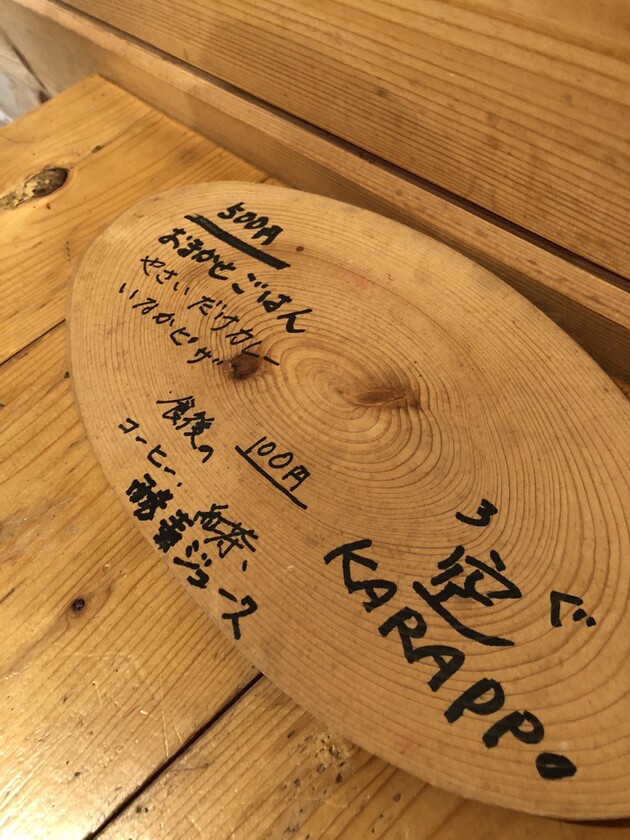 500円
おまかせごはん
やさいだけカレー
いなかピザ
食後の 100円
コーヒー、茶、
酵素ジュース
ろ 空 ぐ
KARAPPO